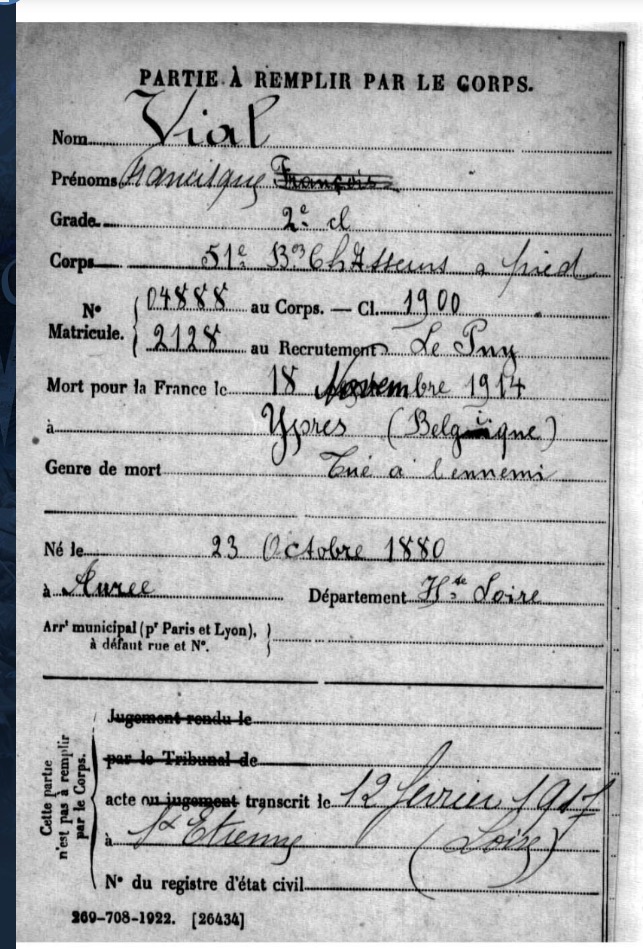 PARTIE À REMPLIR PAR LE CORPS.
Nom Vial
Prénoms Francisque François
Grade 2e cl
Corps 51e Bon Chasseurs a pied
No Matricule. 04888 au Corps. — Cl. 1900
2128 au Recrutement Le Puy
Mort pour la France le 18 Novembre 1914
à Ypres (Belgique)
Genre de mort Tué à l'ennemi
Né le 23 Octobre 1880
à Aurec Département Hte Loire
Arrt municipal (pr Paris et Lyon),
à défaut rue et No.
Cette partie n'est pas à remplir par le Corps.
Jugement rendu le
par le Tribunal de
acte ou jugement transcrit le 12 février 1917
à St Etienne (Loire)
No du registre d'état civil
269-708-1922. [26434]